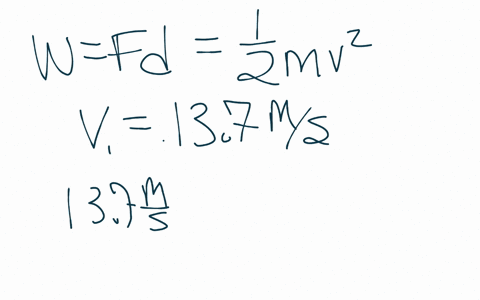 W=Fd = 1/2 mv²
V₁ = .13.7 M/S
13.7 M/S